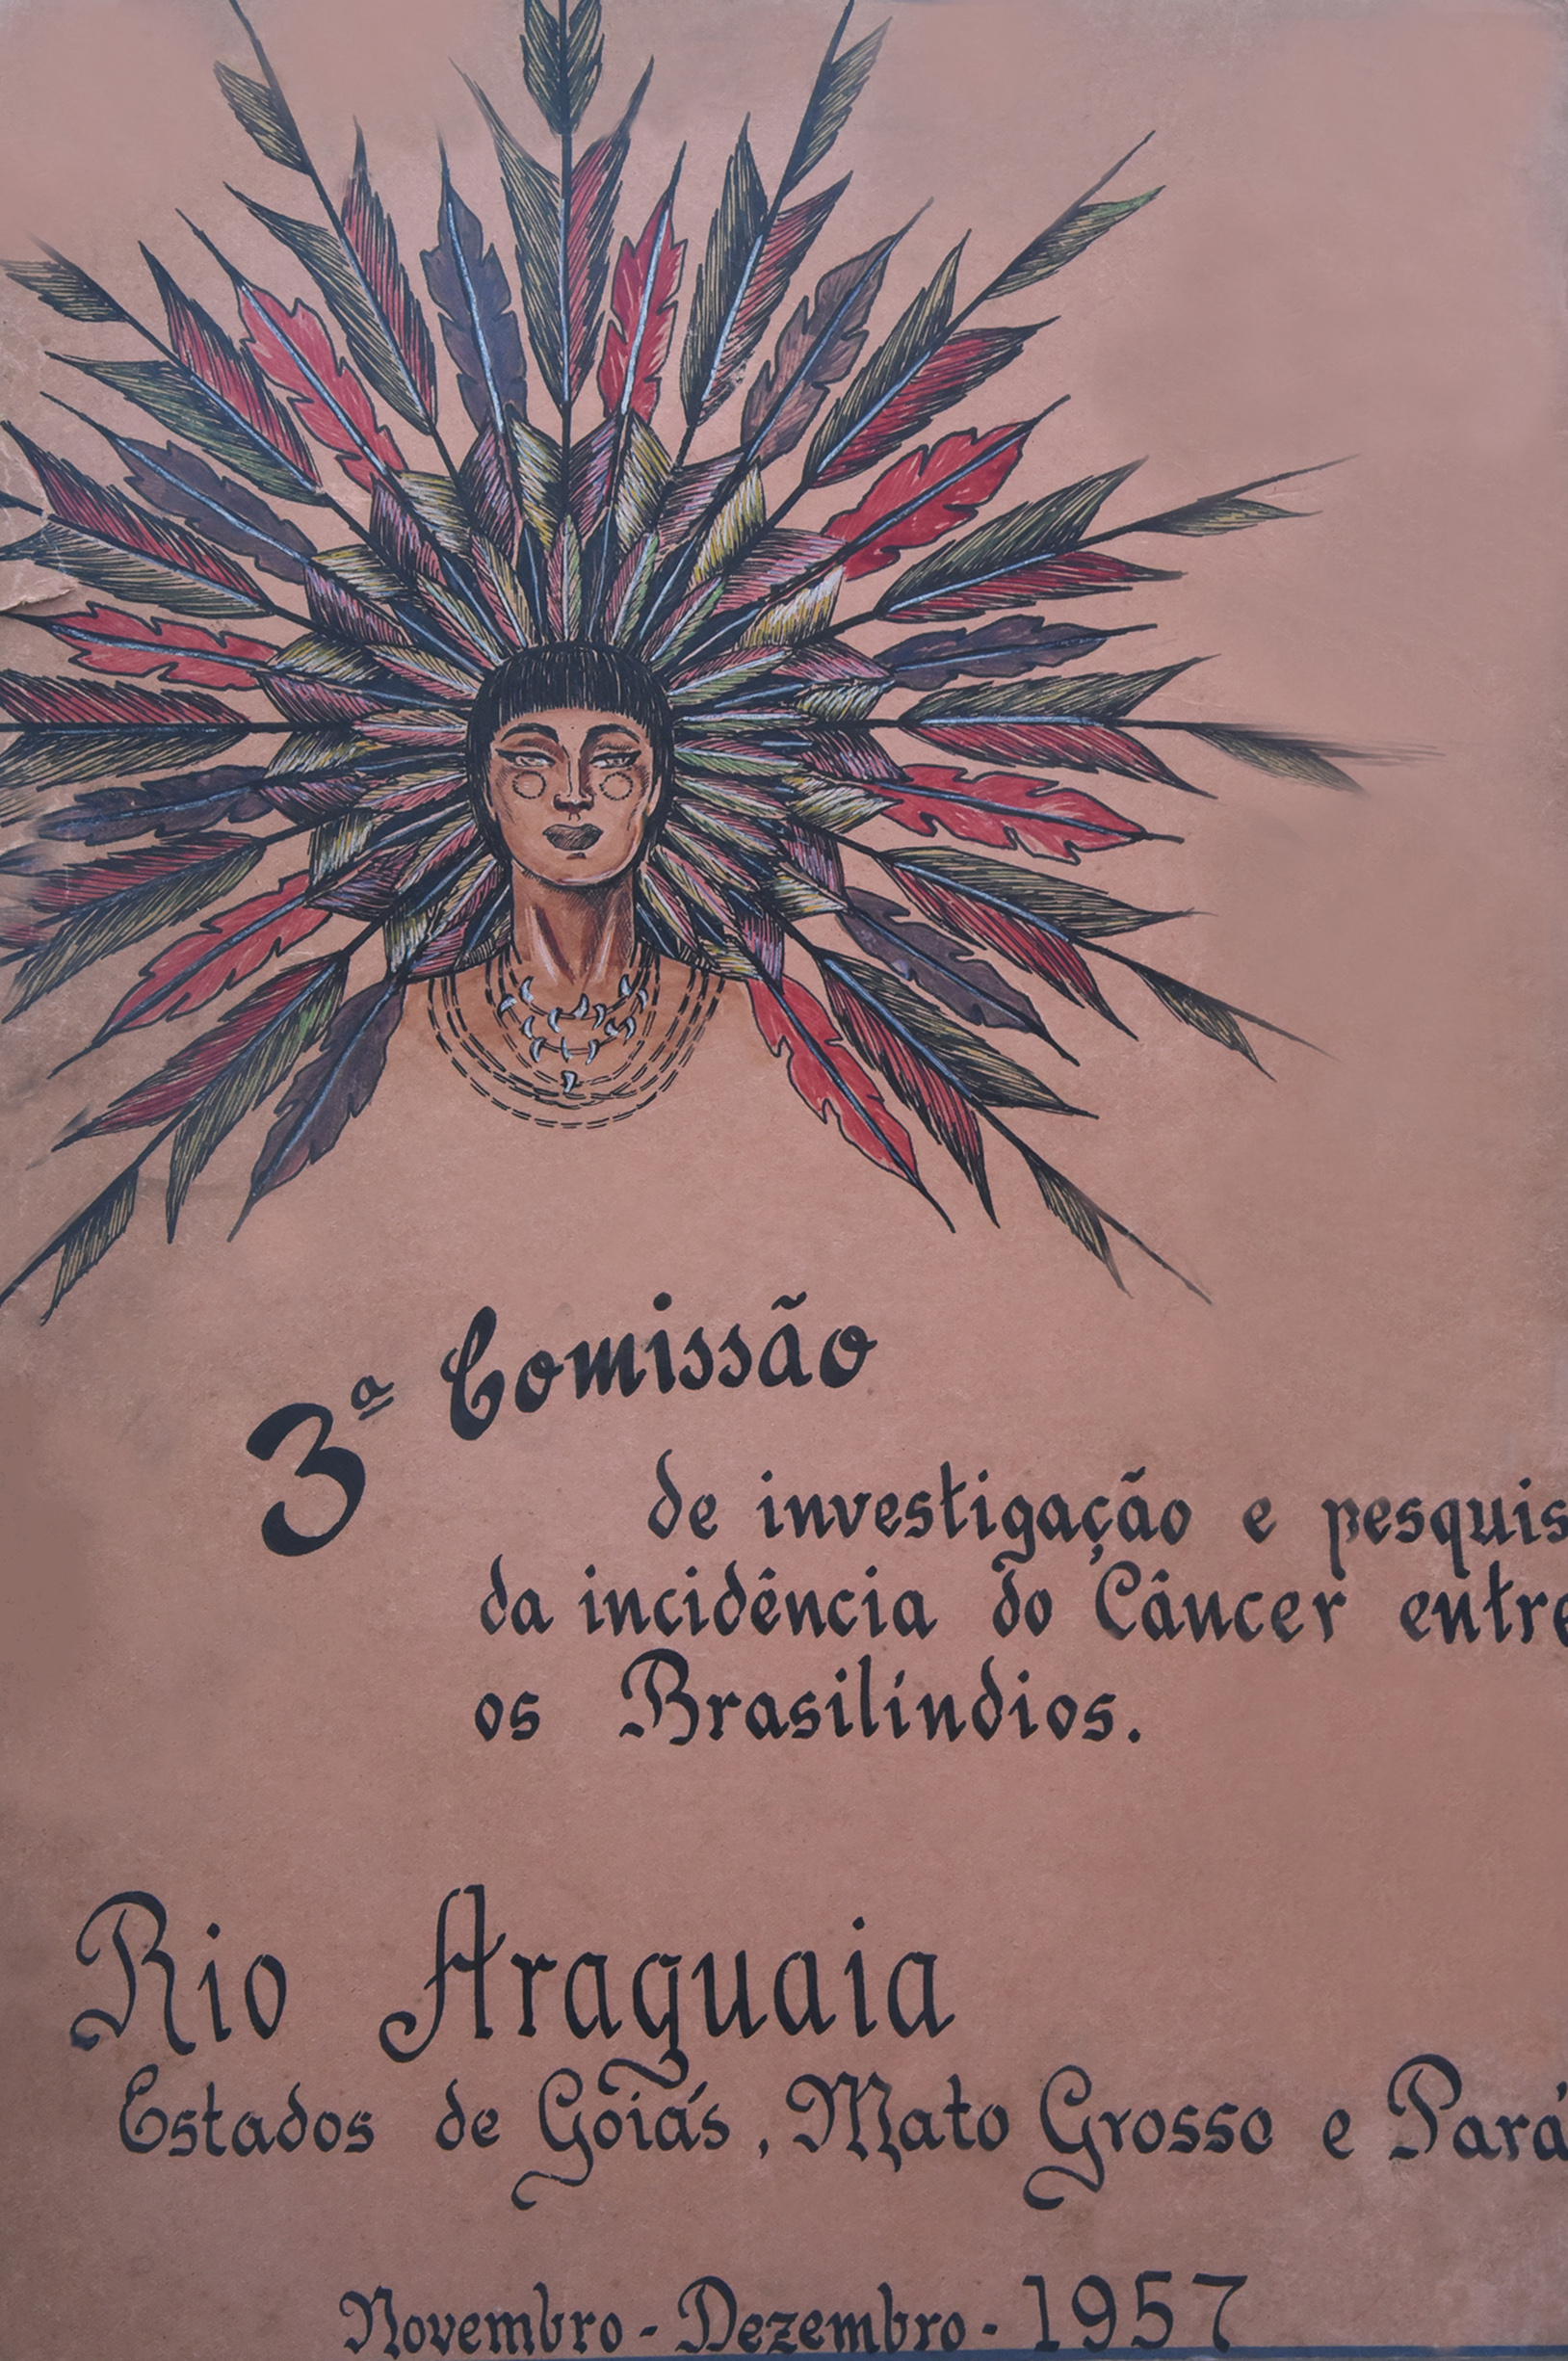 3ª Comissão
de investigação e pesquis
da incidência do Câncer entre
os Brasilíndios.
Rio Araguaia
Estados de Goiás, Mato Grosso e Pará
Novembro - Dezembro - 1957